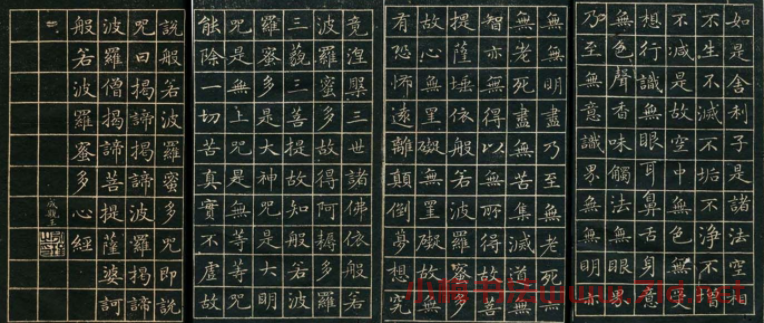 如是舍利子是諸法空相
不生不滅不垢不淨不增
不減是故空中無色無受
想行識無眼耳鼻舌身意
無色聲香味觸法無眼界
乃至無意識界無無明亦
無無明盡乃至無老死亦
無老死盡無苦集滅道無
智亦無得以無所得故菩
提薩埵依般若波羅蜜多
故心無罣礙無罣礙故無
有恐怖遠離顛倒夢想究
竟涅槃三世諸佛依般若
波羅蜜多故得阿耨多羅
三藐三菩提故知般若波
羅蜜多是大神咒是大明
咒是無上咒是無等等咒
能除一切苦真實不虛故
說般若波羅蜜多咒即說
咒曰揭諦揭諦波羅揭諦
波羅僧揭諦菩提薩婆訶
般若波羅蜜多心經
成親王